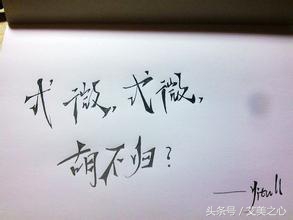 式微，式微，
胡不归？
——yitull
头条号／艾美之心